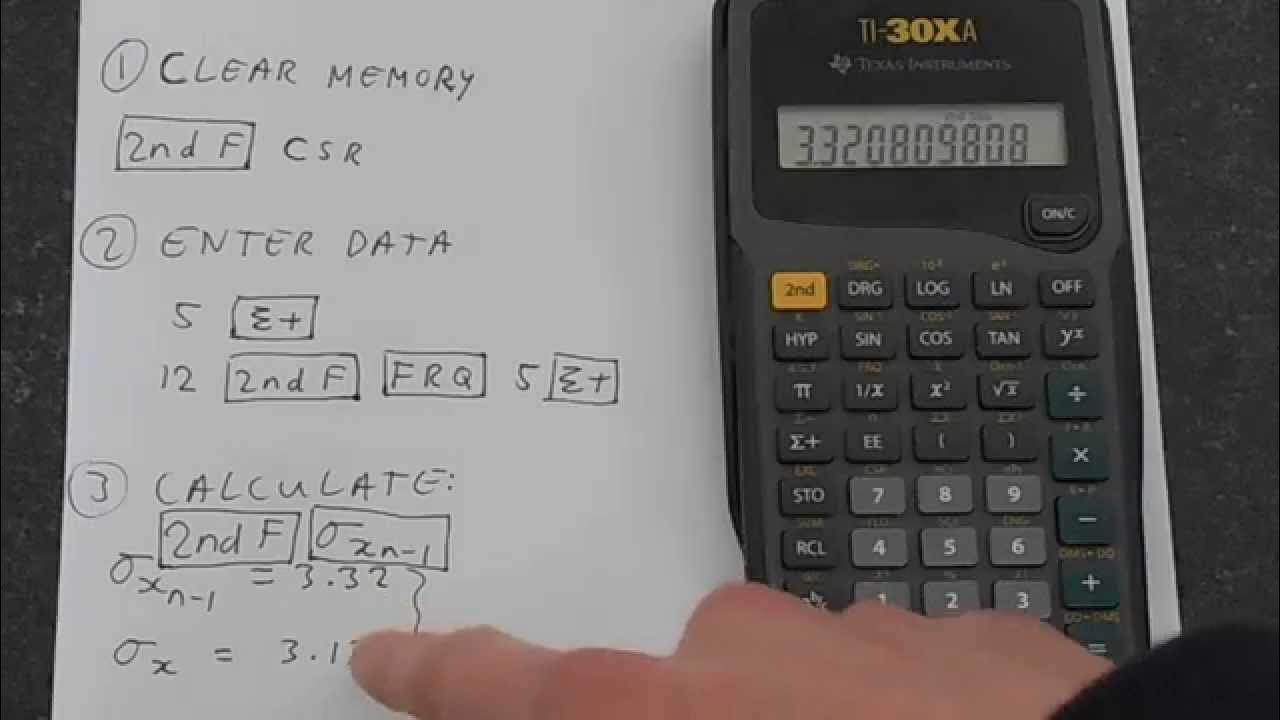 ① CLEAR MEMORY
2nd F CSR
② ENTER DATA
5 Σ+
12 2nd F FRQ 5 Σ+
③ CALCULATE:
2nd F σxn-1
σxn-1 = 3.32
σx = 3.1
TI-30XA
TEXAS INSTRUMENTS
3.320809808
ON/C
2nd DRG LOG LN OFF
HYP SIN COS TAN yˣ
π 1/x x² √x ÷
Σ+ EE ( ) ×
STO 7 8 9 −
RCL 4 5 6 +
1 2 3 =